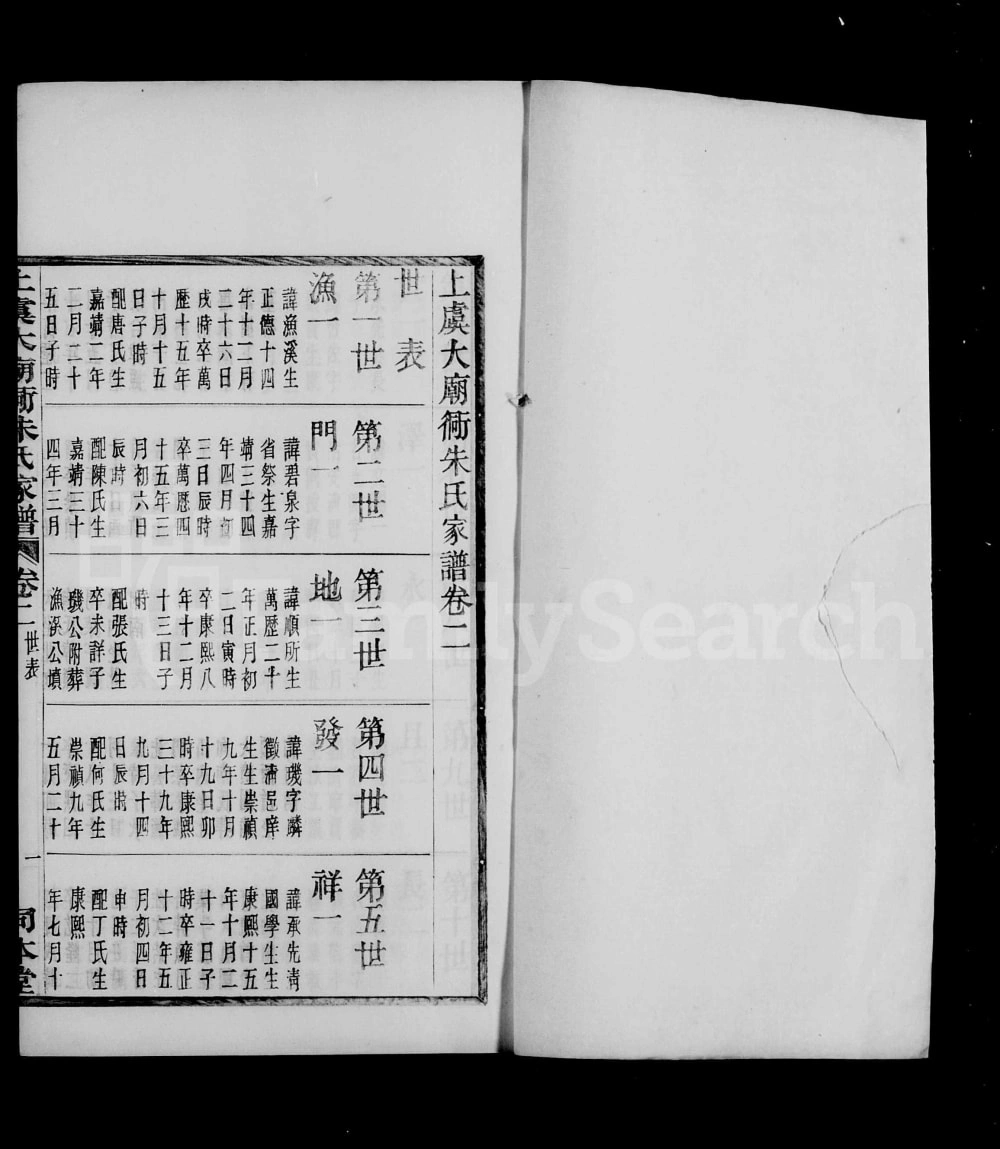 上虞大廟衖朱氏家譜卷二
世表
第一世
漁一
諱漁溪生
正德十四
年十二月
二十六日
戌時卒萬
歷十五年
十月十五
日子時
配唐氏生
嘉靖二年
二月二十
五日子時
第二世
門一
諱碧泉字
省祭生嘉
靖三十四
年四月初
三日辰時
卒萬歷四
十五年三
月初六日
辰時
配陳氏生
嘉靖三十
四年三月
第三世
地一
諱順所生
萬歷二十
年正月初
二日寅時
卒康熙八
年十二月
十三日子
時
配張氏生
卒未詳子
璣公附葬
漁溪公墳
第四世
發一
諱璣字麟
徵清邑庠
生生崇禎
九年十月
十九日卯
時卒康熙
三十九年
九月十四
日辰時
配何氏生
崇禎九年
五月二十
第五世
祥一
諱承先清
國學生生
康熙十五
年十月二
十一日子
時卒雍正
十二年五
月初四日
申時
配丁氏生
康熙
年七月十
上虞大廟衖朱氏家譜
卷二
世表
一
同本堂
FamilySearch